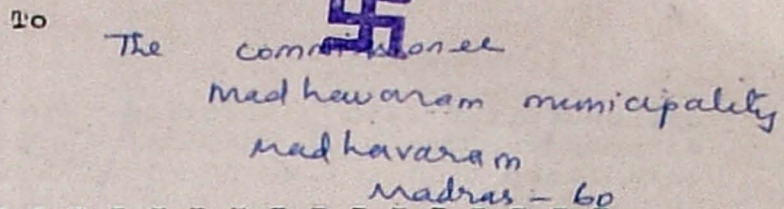 To
The commissioner
Madhavaram municipality
Madhavaram
Madras - 60